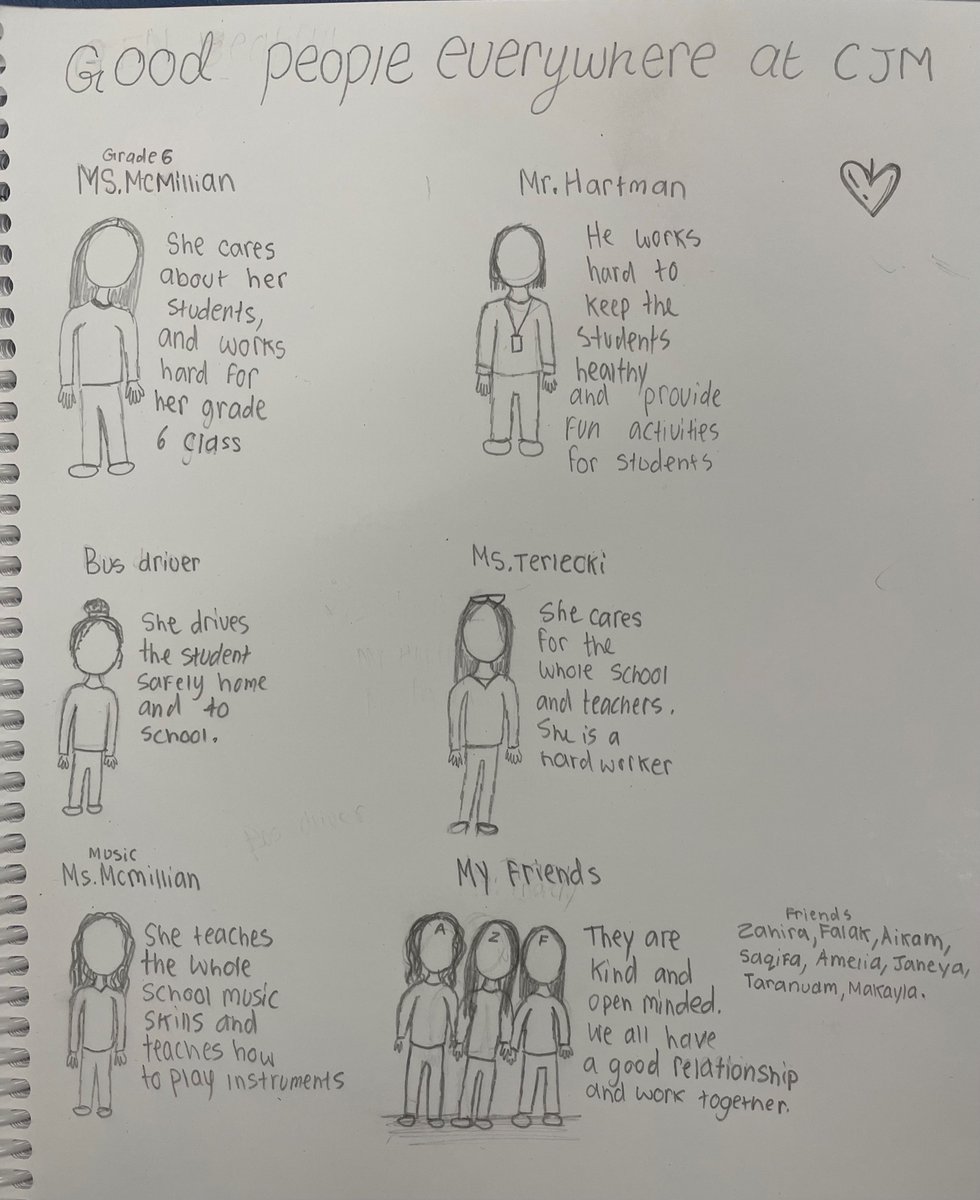 Good people everywhere at CJM
Grade 6
MS. McMillian
She cares
about her
students,
and works
hard for
her grade
6 class
Mr. Hartman
He works
hard to
keep the
students
healthy
and provide
fun activities
for students
Bus driver
She drives
the student
safely home
and to
school.
Ms. Terlecki
She cares
for the
whole school
and teachers.
She is a
hard worker
Music
Ms. Mcmillian
She teaches
the whole
school music
skills and
teaches how
to play instruments
My Friends
A Z F
They are
kind and
open minded.
We all have
a good relationship
and work together.
Friends
Zahira, Falak, Aikam,
Saqifa, Amelia, Janeya,
Taranvdm, Makayla.